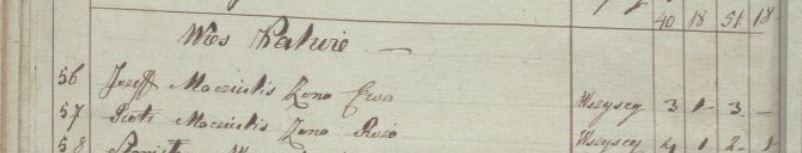 40 18 51 18
Wies Pakwie —
56 Jozeff Macziulis Zona Ewa Wszyscy 3 1 3 —
57 Piotr Maczulis Zona Roza Wszyscy 4 1 2 1
58